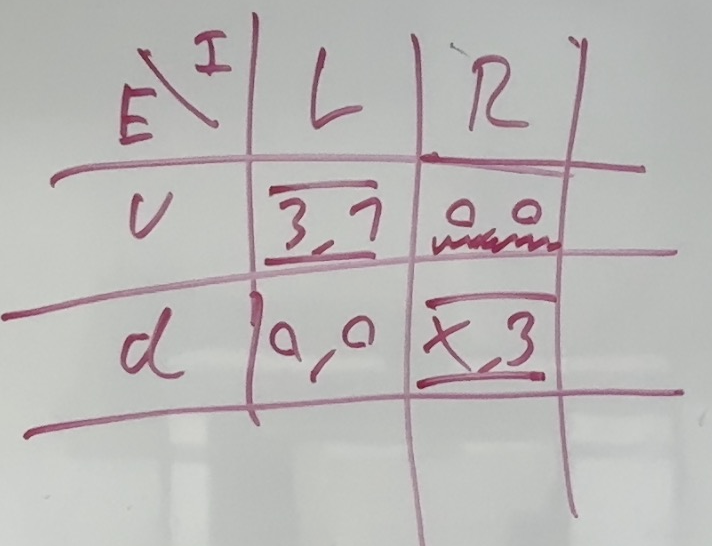 E\I L R
U 3,1 0,0
d 0,0 x,3